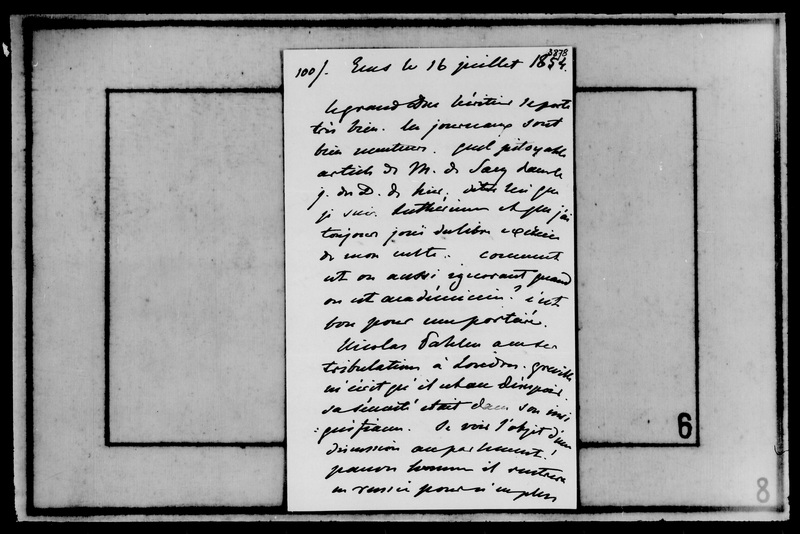 3878
100/. Ems le 16 juillet 1854.
le grand Duc héritier se porte
très bien. les journaux sont
bien menteurs. quel pitoyable
article de M. de Sacy dans le
J. des D. de hier. dites lui que
je suis luthérienne et que j'ai
toujours joui du libre exercice
de mon culte. comment
est on aussi ignorant quand
on est académicien? c'est
bon pour une portière.
Nicolas Pahlen a eu ses
tribulations à Londres. Greville
m'écrit qu'il est au désespoir.
sa sécurité était dans son insi-
:gnifiance. Se voir l'objet d'une
discussion au parlement!
pauvre homme il rentrera
en russie pour n'en plus
6
8